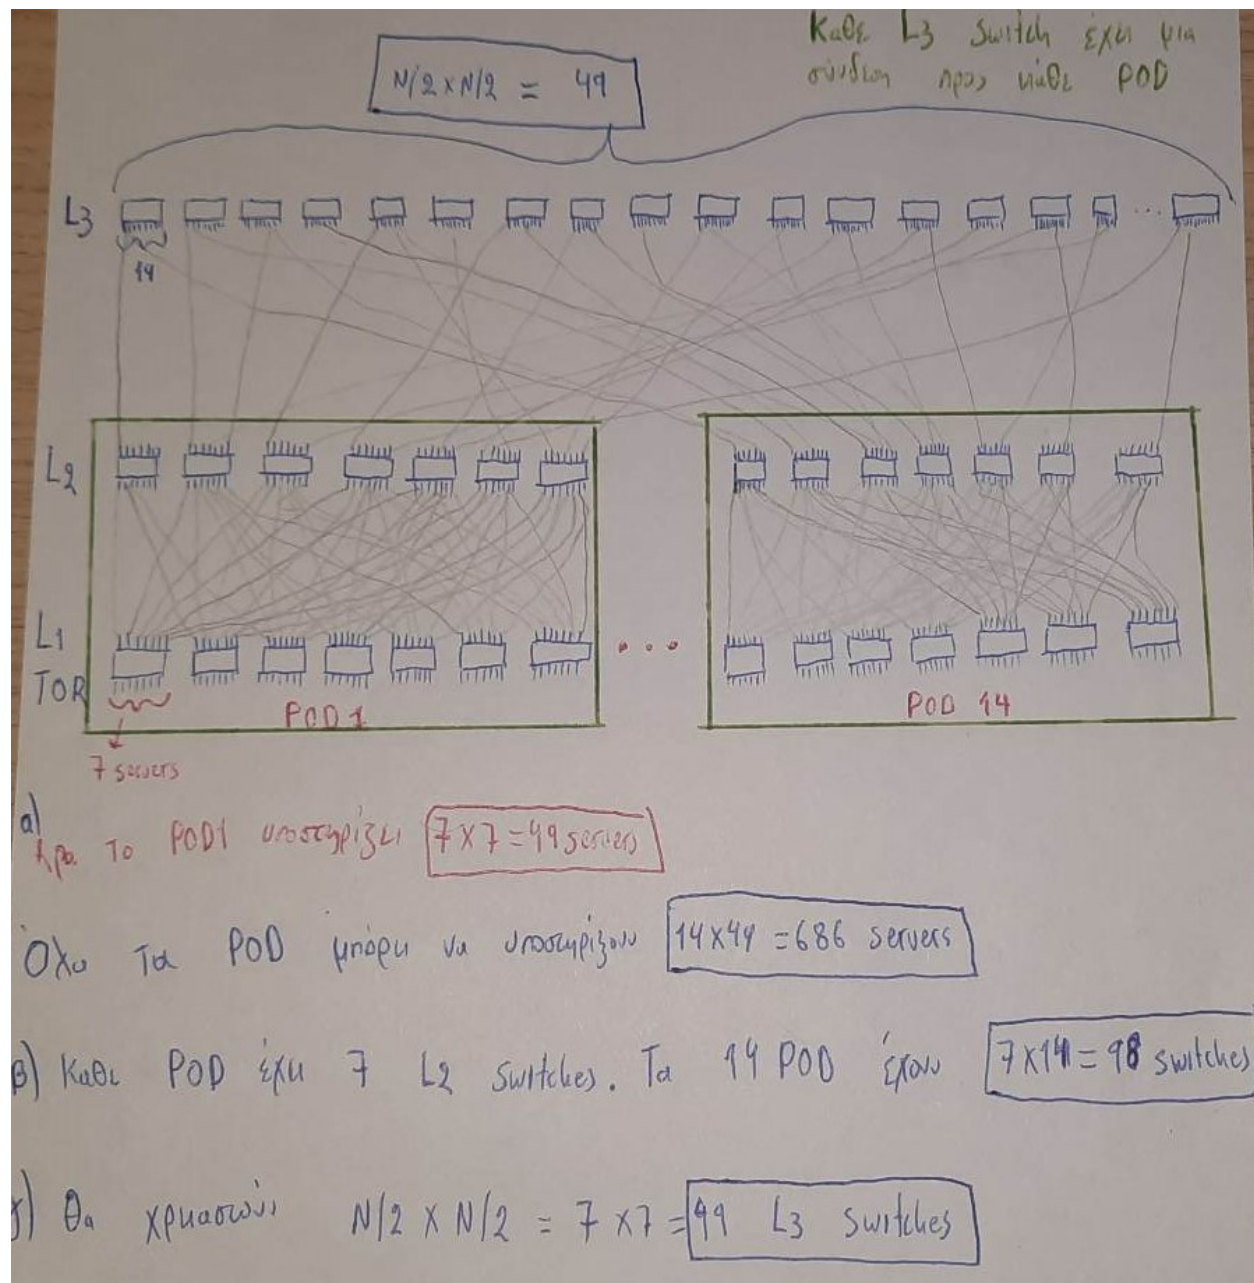 Καθε L3 switch έχει μια
σύνδεση προς κάθε POD
N/2 x N/2 = 49
L3
...
14
L2
L1
TOR
...
POD 1
POD 14
7 servers
α)
Άρα το POD1 υποστηρίζει 7 x 7 = 49 servers
Όλα τα POD μπόρει να υποστηρίζουν 14 x 49 = 686 servers
β) Καθε POD έχει 7 L2 switches. Τα 14 POD έχουν 7 x 14 = 98 switches
γ) Θα χρειαστούν N/2 x N/2 = 7 x 7 = 49 L3 switches